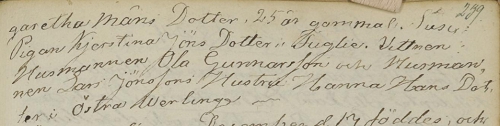 garetha Måns Dotter. 25 år gammal. Susc: 289
Pigan Kjerstina Jöns Dotter i Fuglie. Vittnen:
Husmannen Ola Gunnarsson och Husman,
nen Lars Jönssons Hustru Hanna Hans Dot,
ter i Östra Werlinge
December d. 17 föddes, och